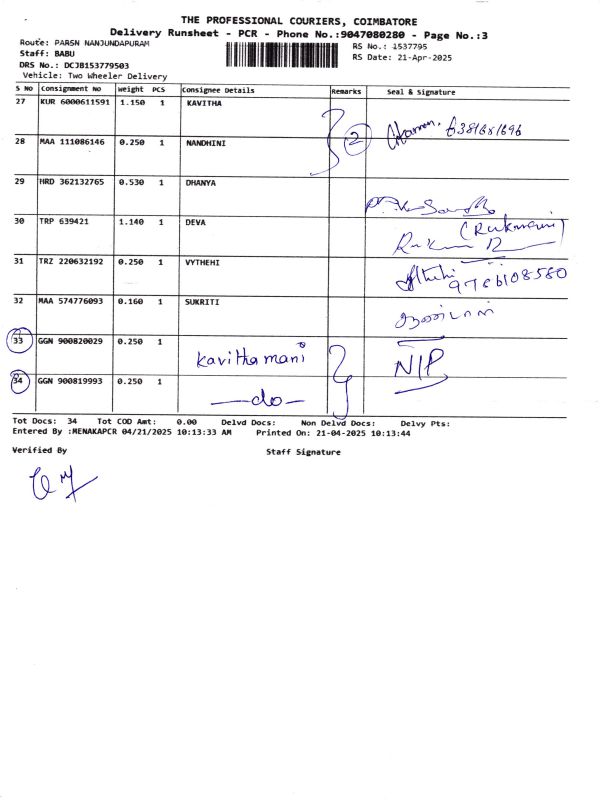 THE PROFESSIONAL COURIERS, COIMBATORE
Delivery Runsheet - PCR - Phone No.:9047080280 - Page No.:3
Route: PARSN NANJUNDAPURAM
RS No.: 1537795
Staff: BABU
RS Date: 21-Apr-2025
DRS No.: DCJB153779503
Vehicle: Two Wheeler Delivery
S NO Consignment No Weight PCS Consignee Details Remarks Seal & Signature
27 KUR 6000611591 1.150 1 KAVITHA
2
28 MAA 111086146 0.250 1 NANDHINI
29 HRD 362132765 0.530 1 DHANYA
30 TRP 639421 1.140 1 DEVA
(Rukmani)
31 TRZ 220632192 0.250 1 VYTHEHI
9786108580
32 MAA 574776093 0.160 1 SUKRITI
33 GGN 900820029 0.250 1 Kavithamani NIP
34 GGN 900819993 0.250 1 —do—
Tot Docs: 34 Tot COD Amt: 0.00 Delvd Docs: Non Delvd Docs: Delvy Pts:
Entered By :MENAKAPCR 04/21/2025 10:13:33 AM Printed On: 21-04-2025 10:13:44
Verified By Staff Signature